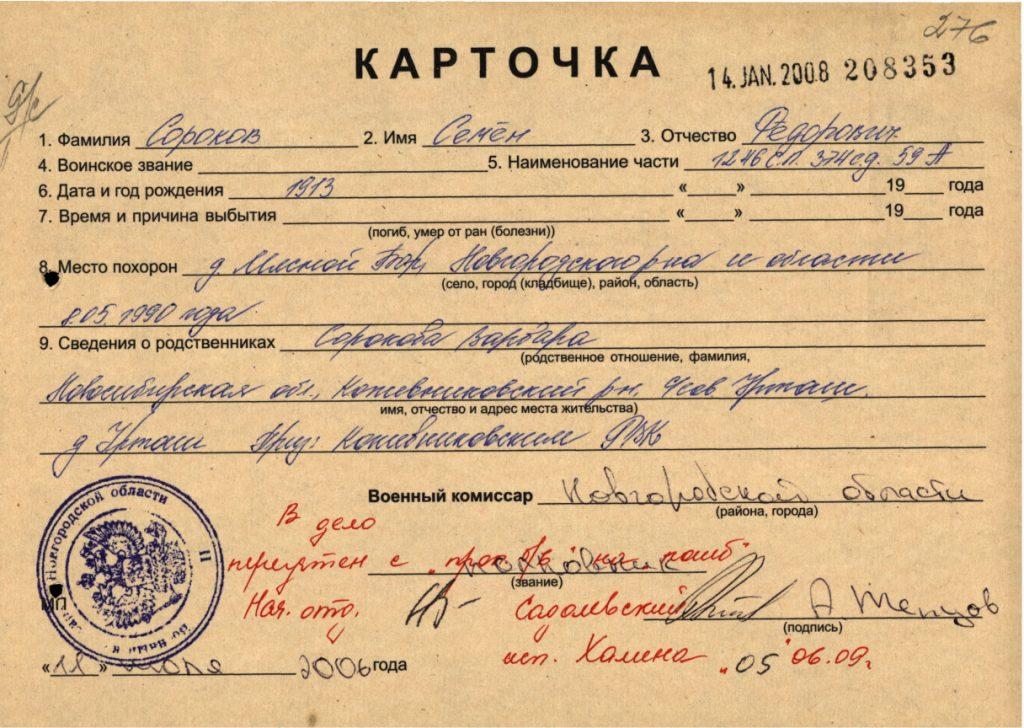 276
КАРТОЧКА
14. JAN. 2008 208353
1. Фамилия Сороков 2. Имя Семён 3. Отчество Федорович
4. Воинское звание 5. Наименование части 1246 с.п. 374 с.д. 59 А
6. Дата и год рождения 1913 « » 19 года
7. Время и причина выбытия « » 19 года
(погиб, умер от ран (болезни))
8. Место похорон д. Мясной Бор, Новгородского р-на и области
(село, город (кладбище), район, область)
8.05.1990 года
9. Сведения о родственниках Сорокова Варвара
(родственное отношение, фамилия,
Новосибирская обл., Кожевниковский рн,
имя, отчество и адрес места жительства)
д Уртам Приз: Кожевниковским РВК
Военный комиссар Новгородской области
(района, города)
В дело
с
полковник
(звание)
Нач. отд. Садалевский
(подпись)
МП
исп. Халина "05" 06.09г.
«11» 2006 года
Новгородской области